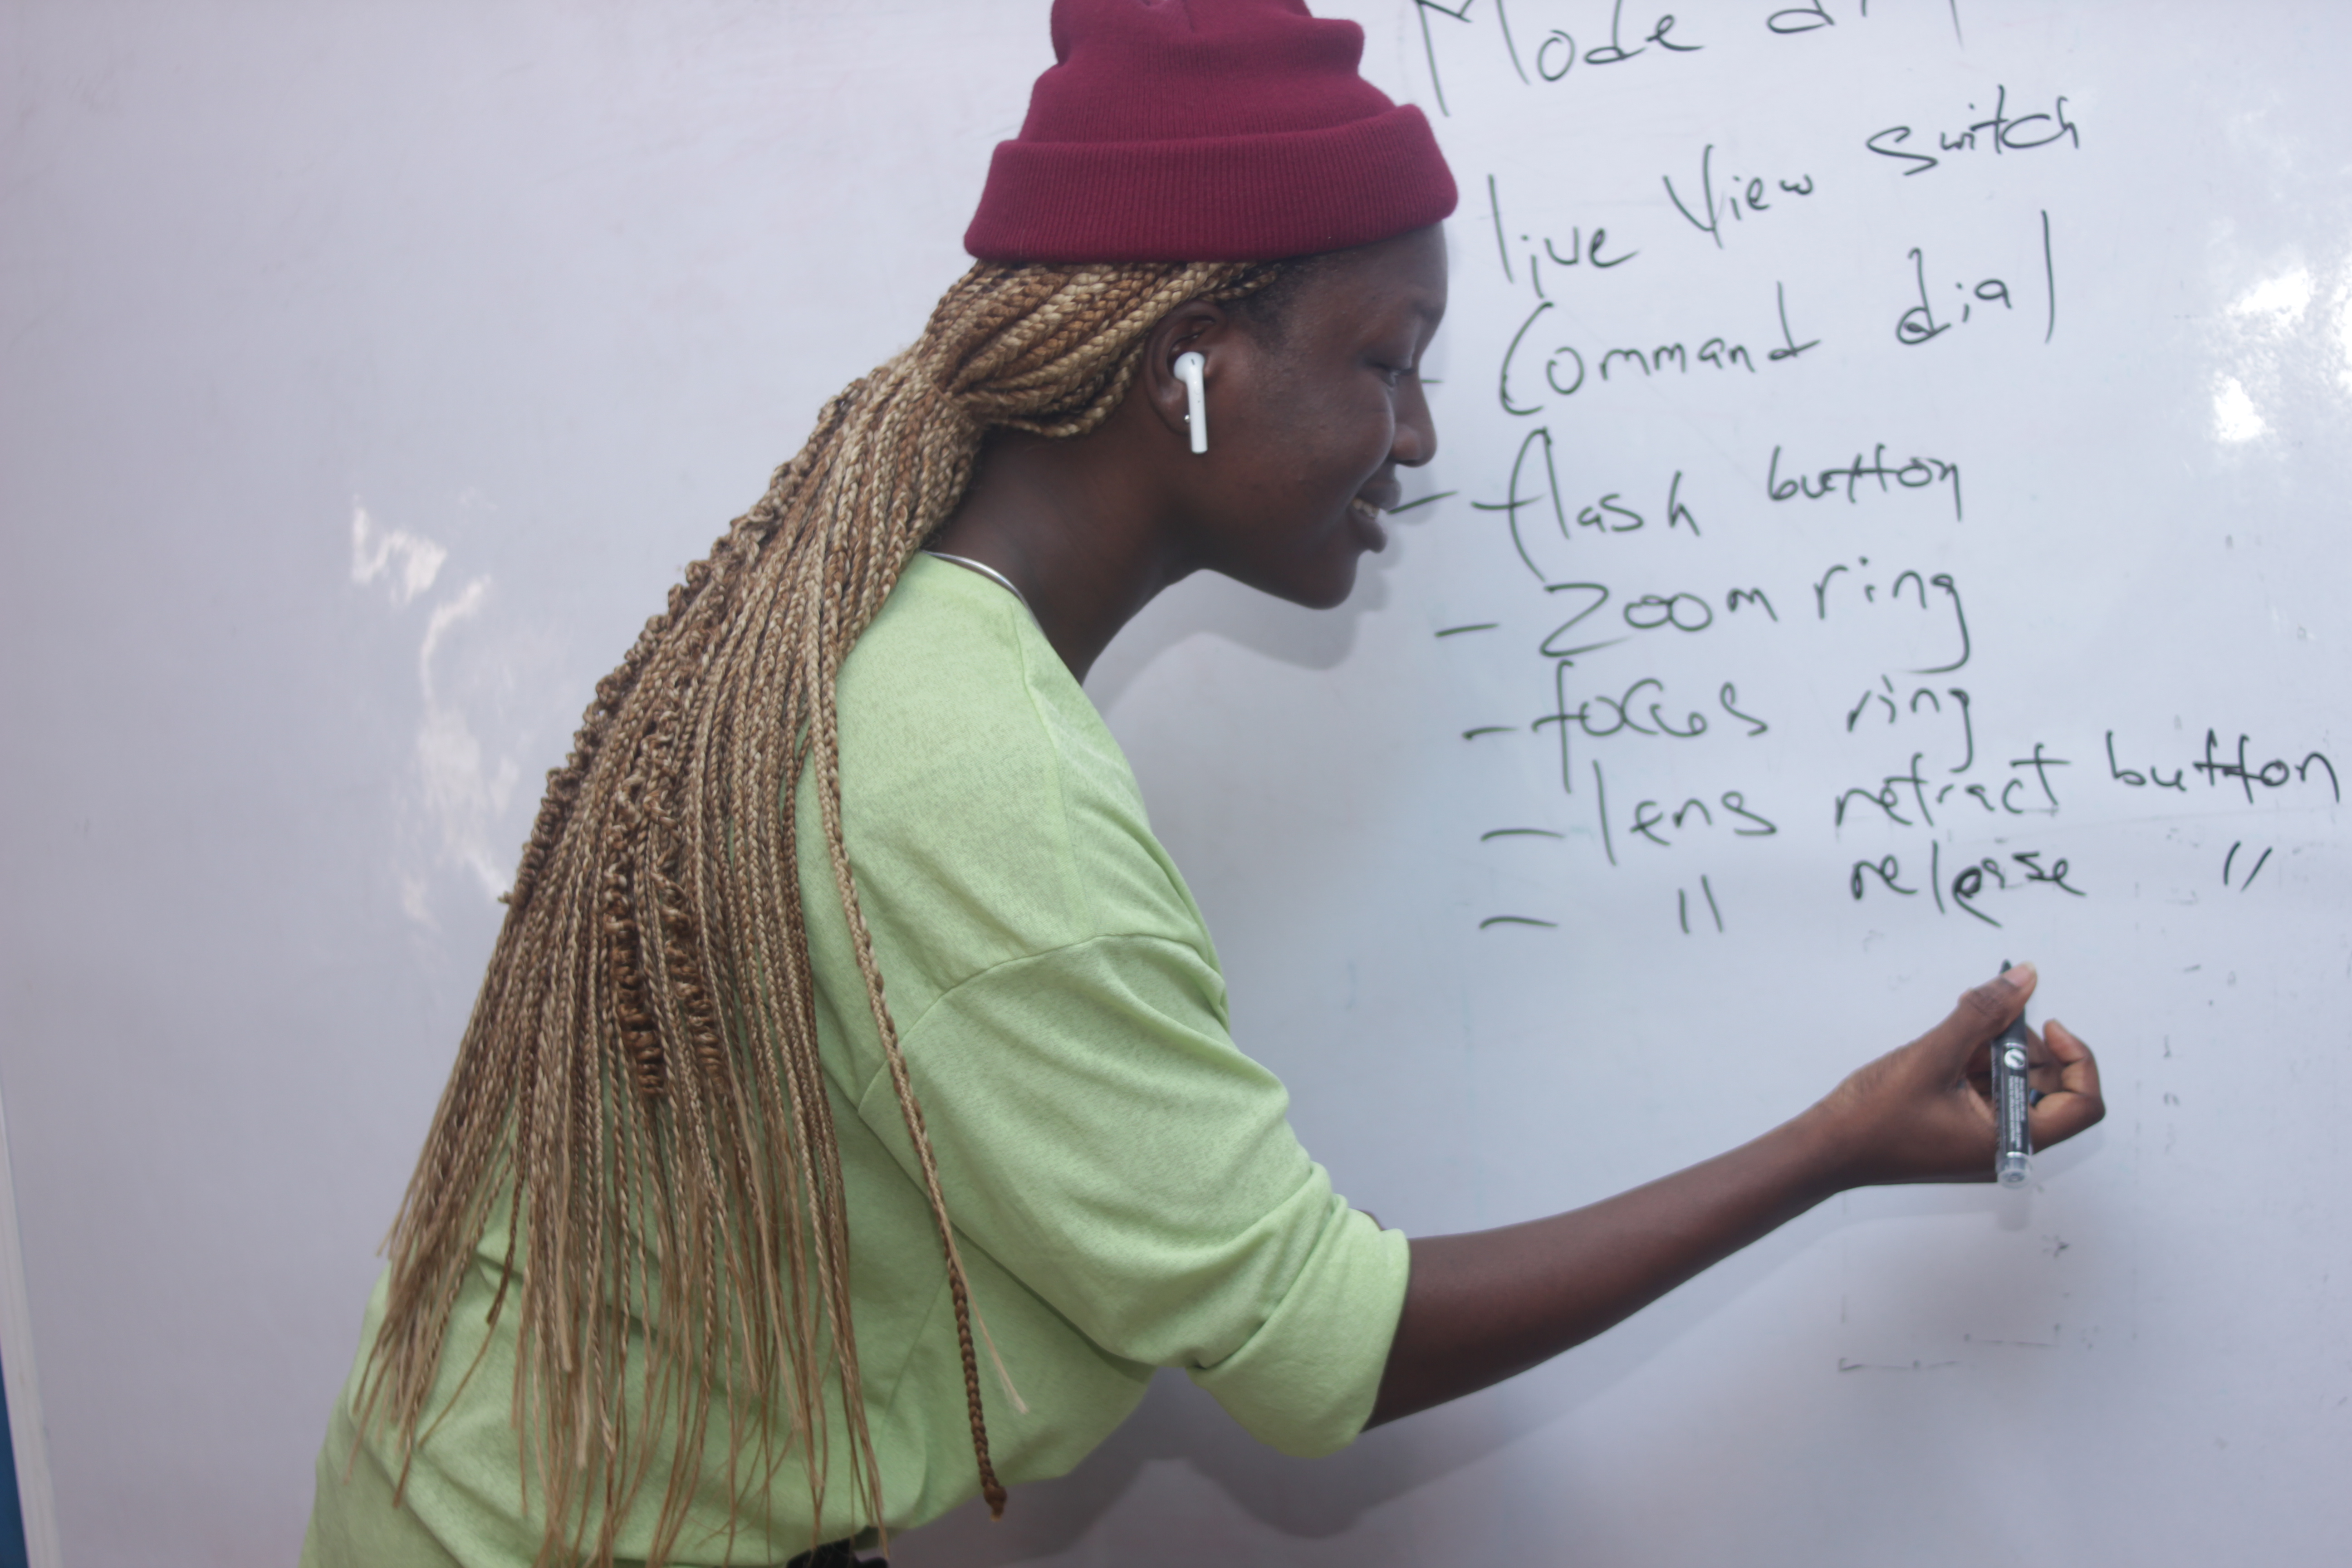 Mode di
live View switch
- Command dial
- flash button
- Zoom ring
- focus ring
- lens retract button
- " release "